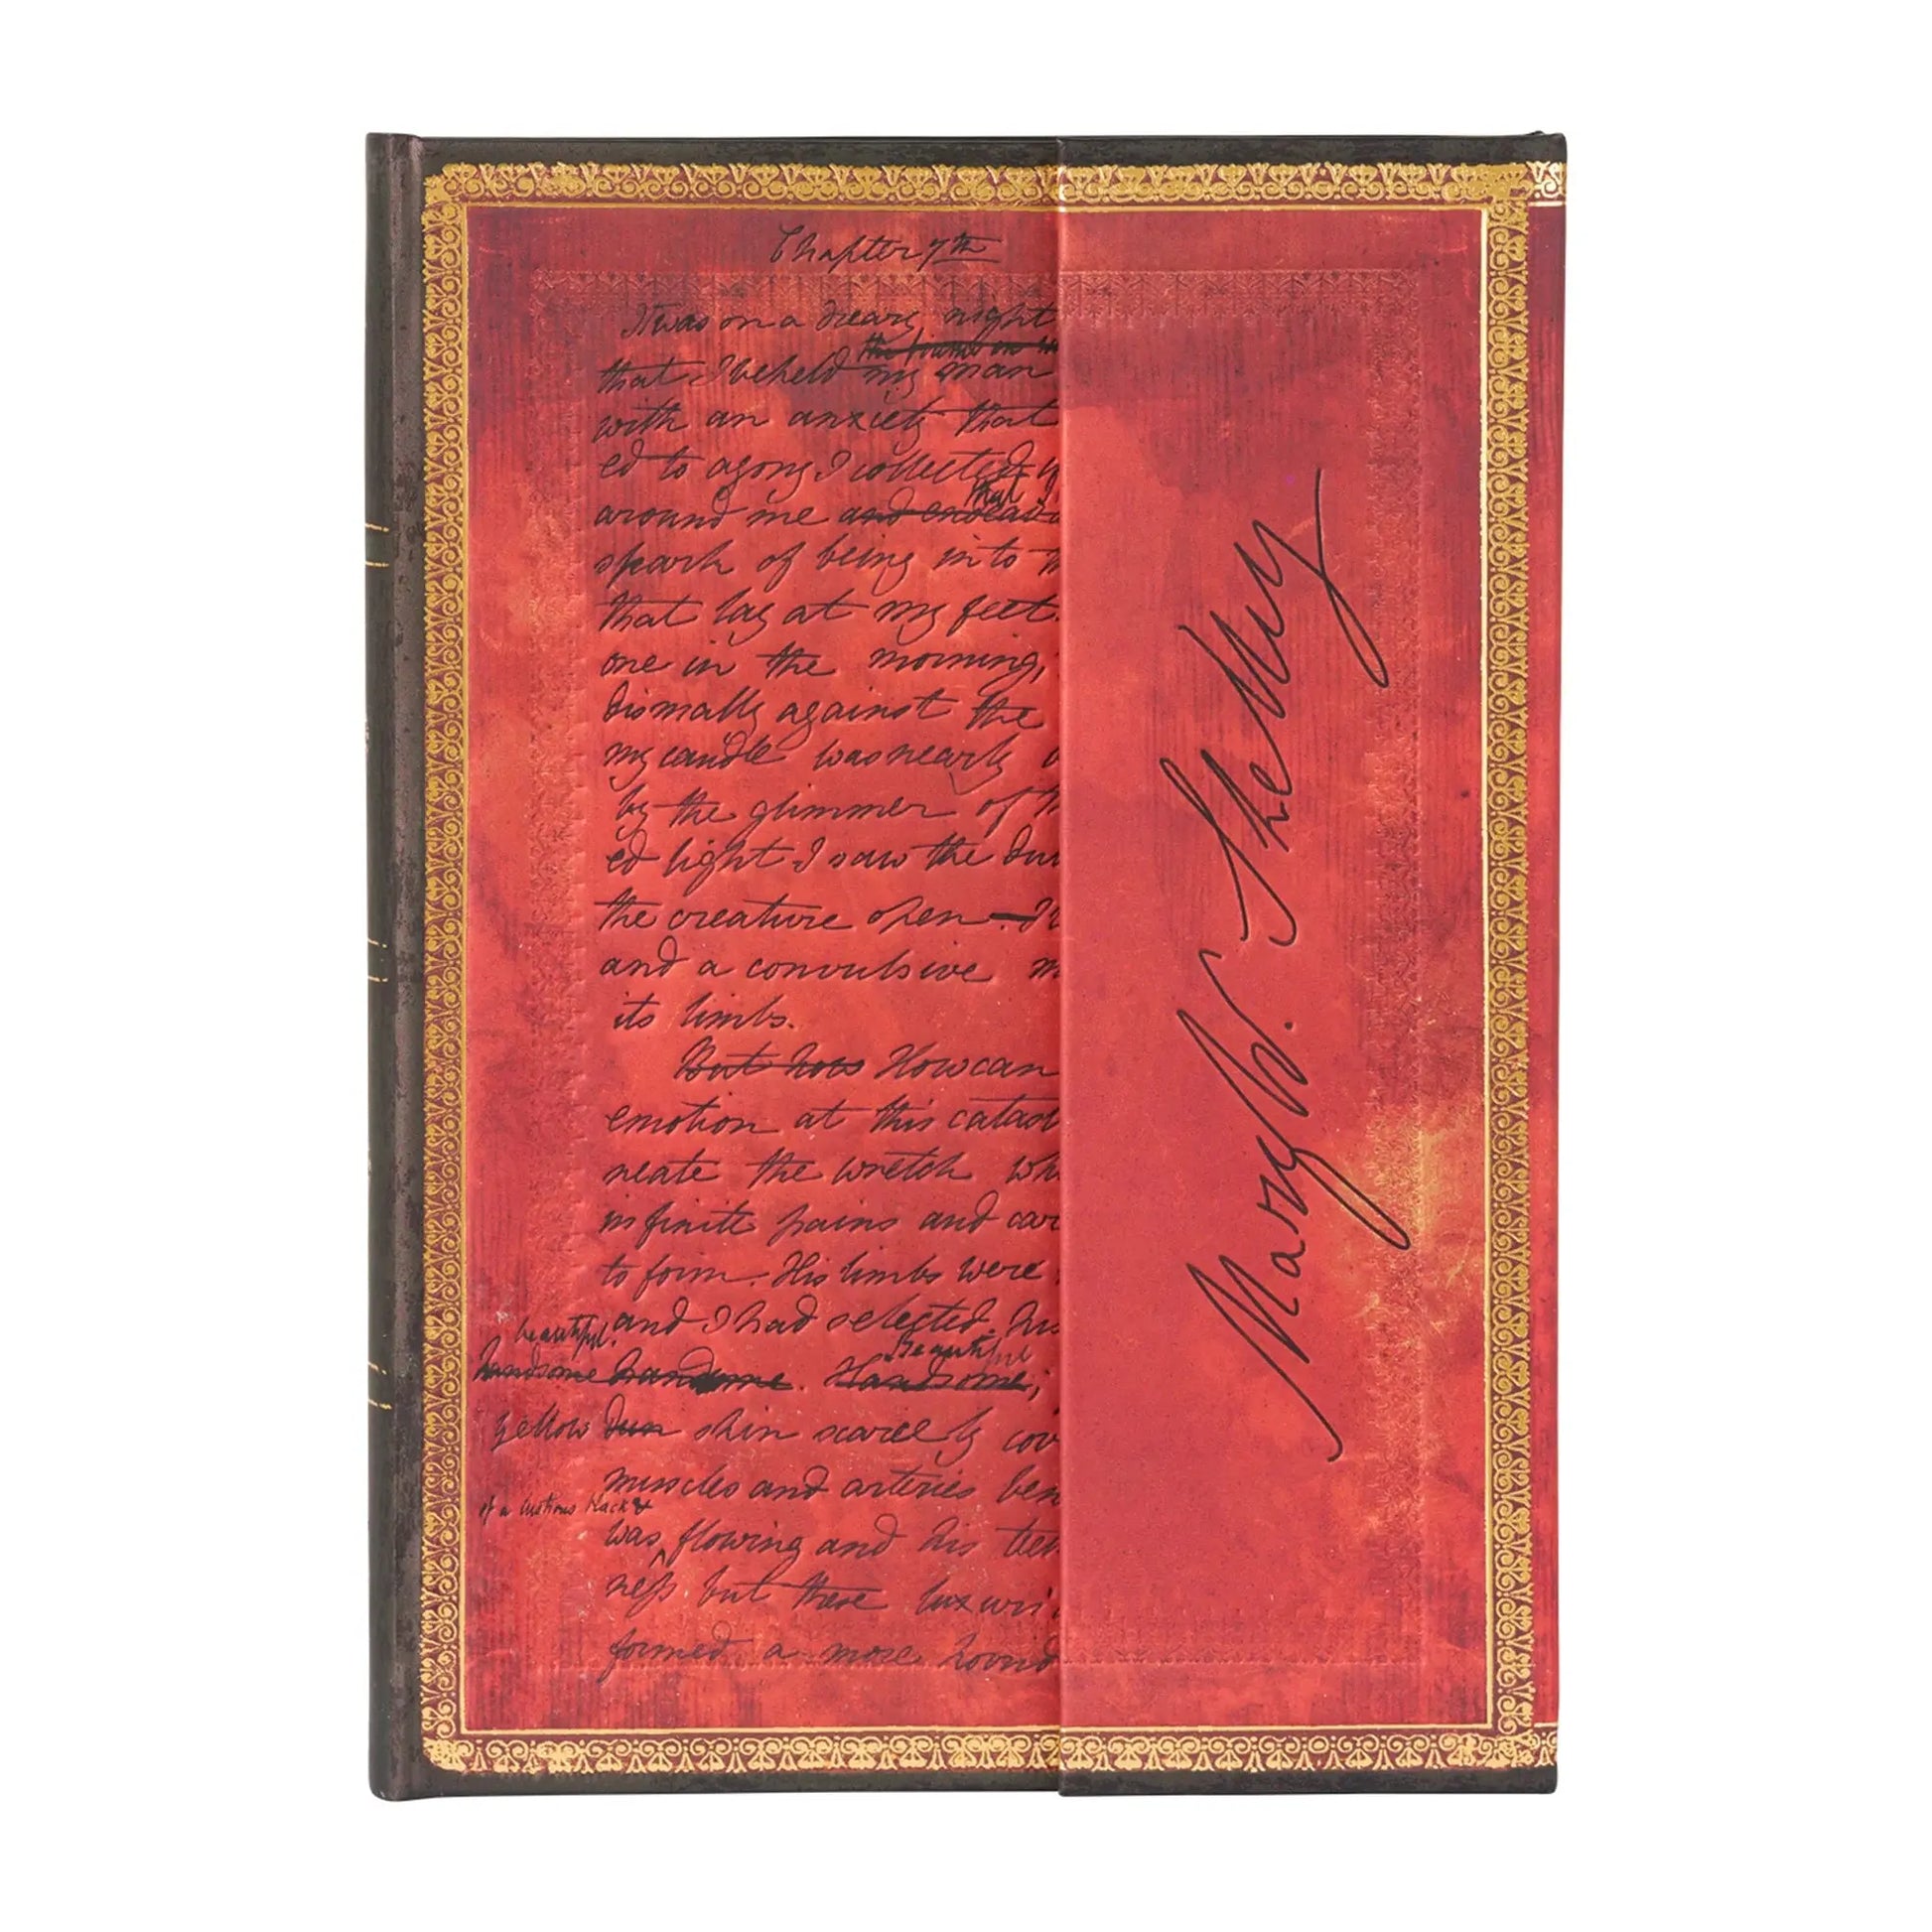 Chapter 7th
It was on a dreary night
that I beheld my man
with an anxiety that
ed to agony I collected
that
around me and endeav
spark of being into
that lay at my feet.
one in the morning,
dismally against the
my candle was nearly
by the glimmer of th
ed light I saw the dul
the creature open
and a convulsive m
its limbs.
But how How can
emotion at this catast
neate the wretch wh
infinite pains and car
to form. His limbs were
beautiful. and I had selected his
Beautiful
handsome handsome. Handsome,
yellow dun skin scarcely cov
muscles and arteries ben
of a lustrous black &
was flowing and his teet
ness but these luxuri
formed a more horrid
Mary W. Shelley